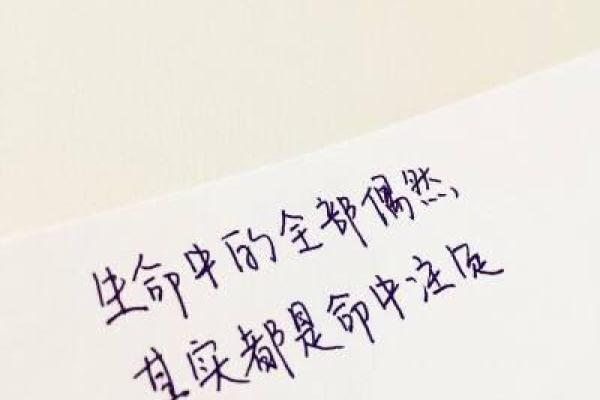 生命中的全部偶然
其实都是命中注定